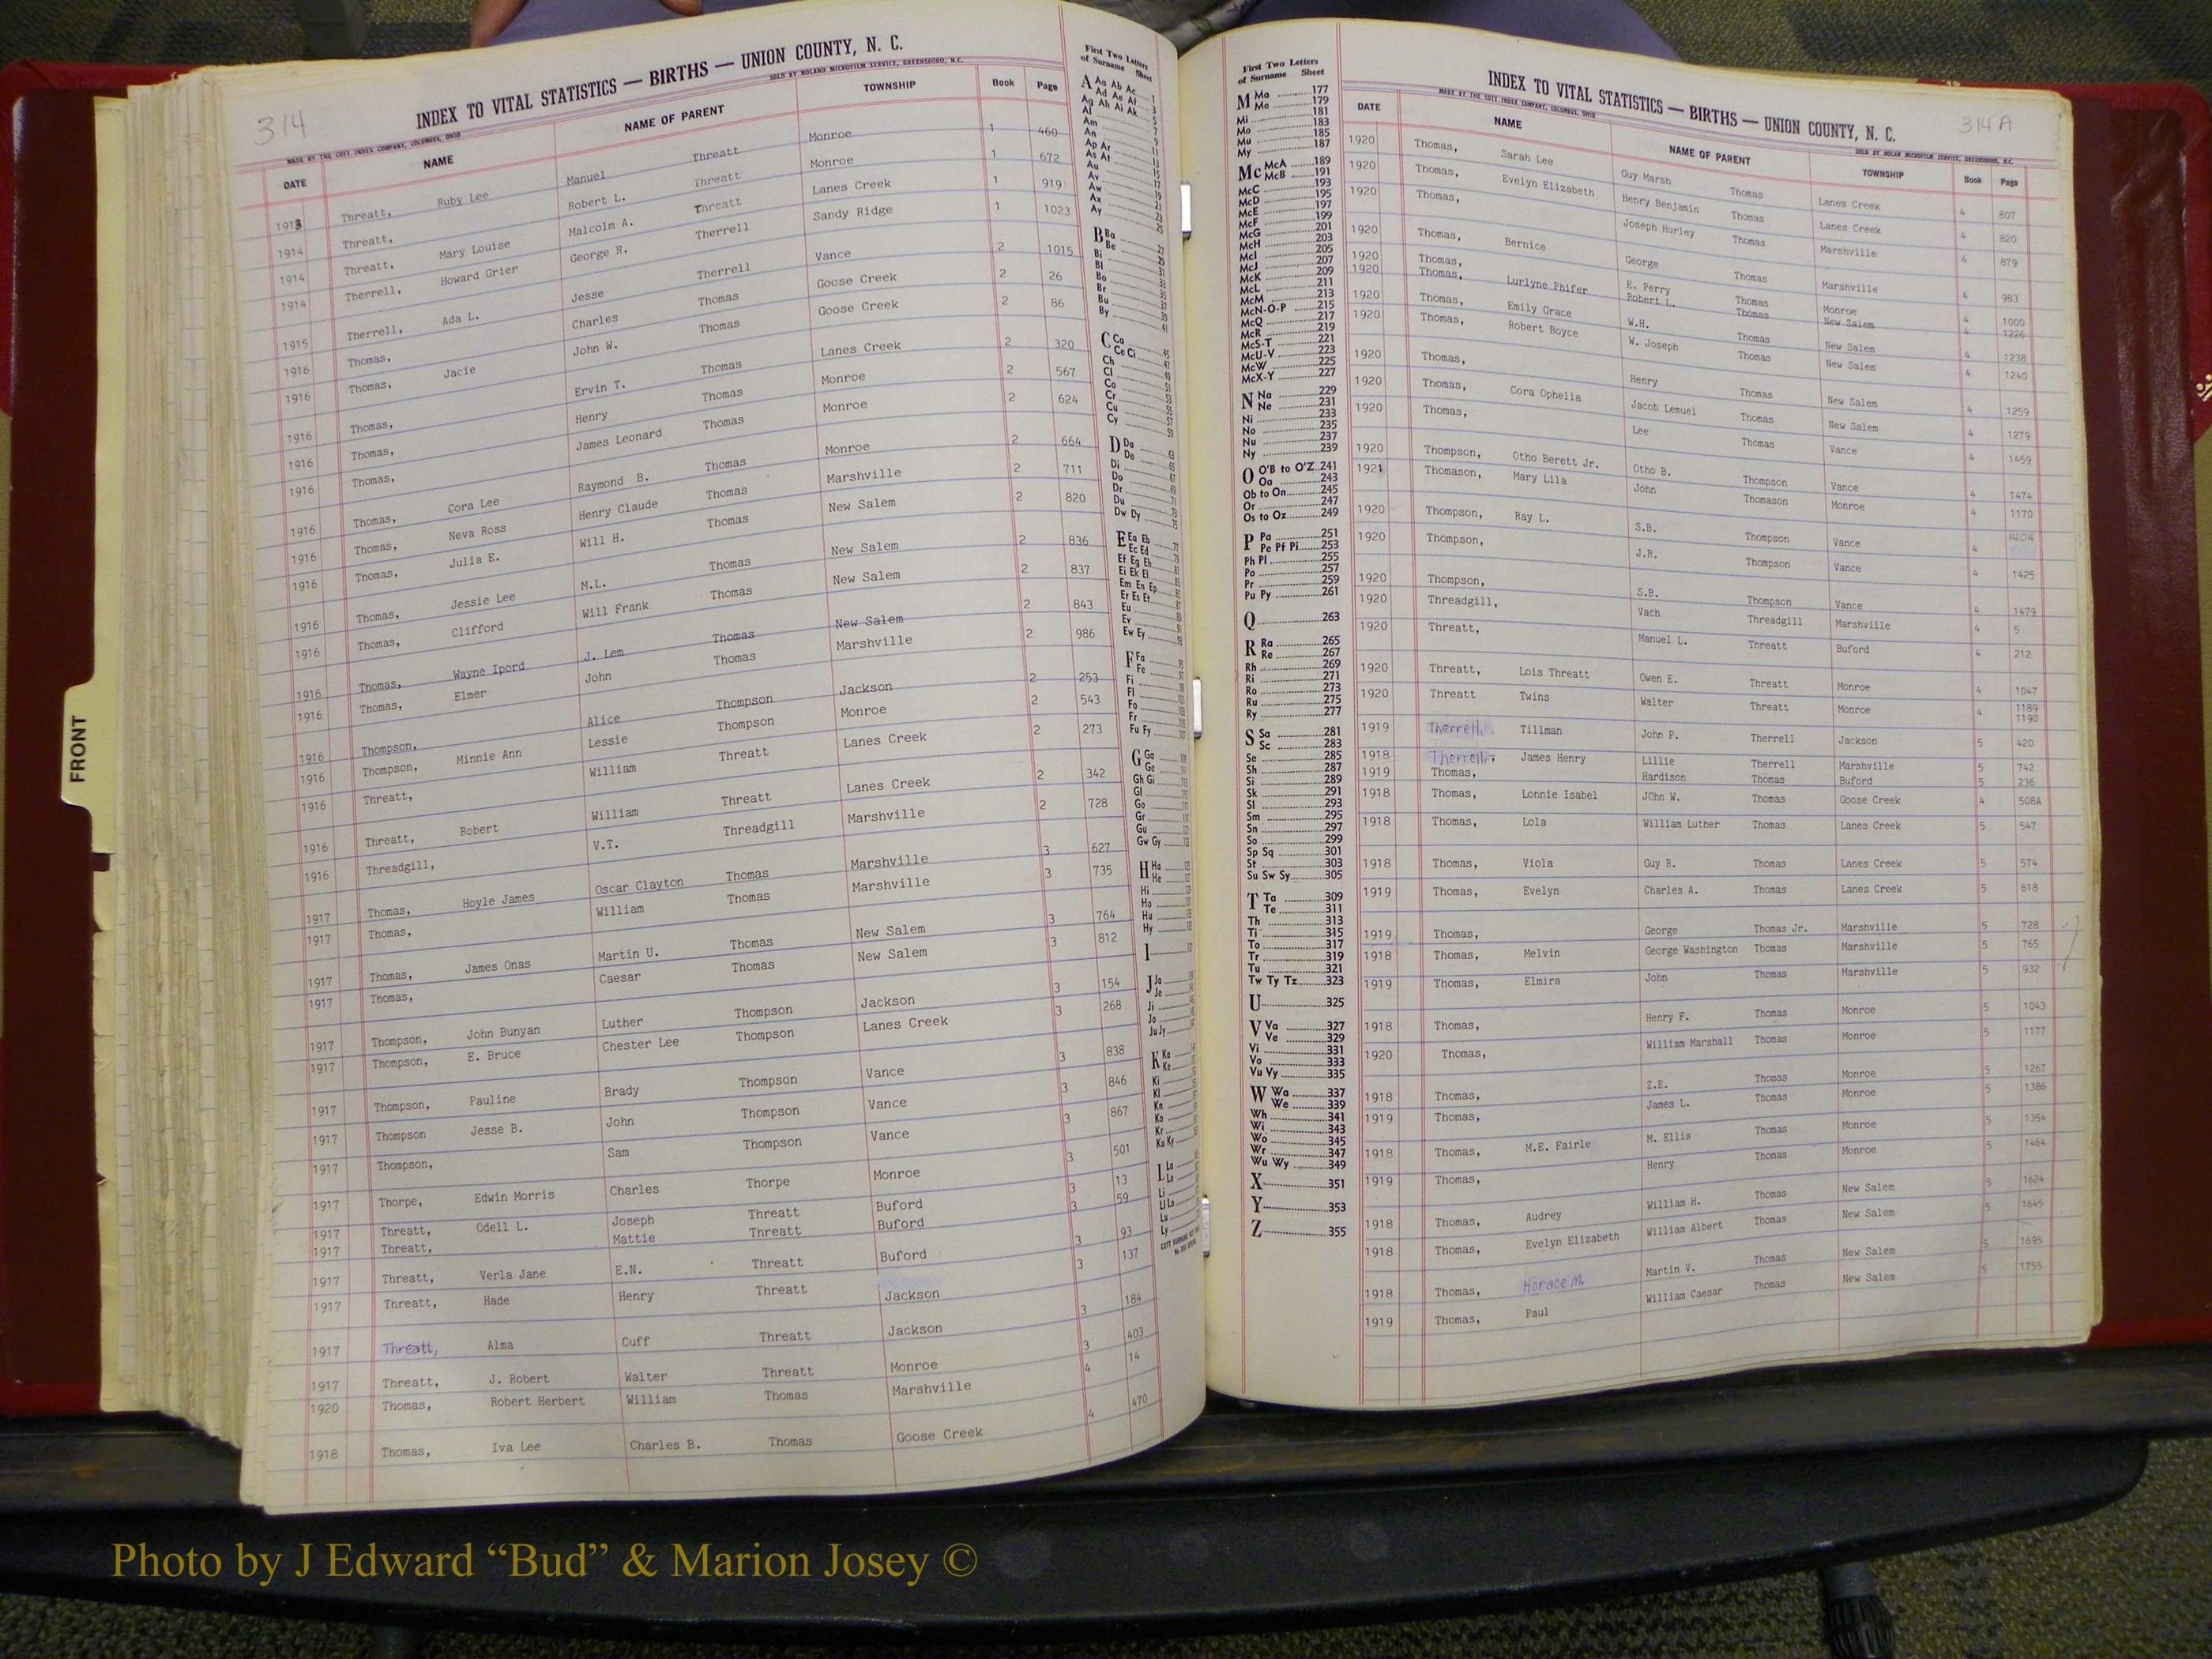 314
INDEX TO VITAL STATISTICS — BIRTHS — UNION COUNTY, N. C.
MADE BY THE COTT INDEX COMPANY, COLUMBUS, OHIO SOLD BY NOLAND MICROFILM SERVICE, GREENSBORO, N.C.
DATE NAME NAME OF PARENT TOWNSHIP Book Page
1913 Threatt, Ruby Lee Manuel Threatt Monroe 1 460
1914 Threatt, Robert L. Threatt Monroe 1 672
1914 Threatt, Mary Louise Malcolm A. Threatt Lanes Creek 1 919
1914 Therrell, Howard Grier George R. Therrell Sandy Ridge 1 1023
1915 Therrell, Ada L. Jesse Therrell Vance 2 1015
1916 Thomas, Charles Thomas Goose Creek 2 26
1916 Thomas, Jacie John W. Thomas Goose Creek 2 86
1916 Thomas, Ervin T. Thomas Lanes Creek 2 320
1916 Thomas, Henry Thomas Monroe 2 567
1916 Thomas, James Leonard Thomas Monroe 2 624
1916 Thomas, Cora Lee Raymond B. Thomas Monroe 2 664
1916 Thomas, Neva Ross Henry Claude Thomas Marshville 2 711
1916 Thomas, Julia E. Will H. Thomas New Salem 2 820
1916 Thomas, Jessie Lee M.L. Thomas New Salem 2 836
1916 Thomas, Clifford Will Frank Thomas New Salem 2 837
1916 Thomas, Wayne Ipord J. Lem Thomas New Salem 2 843
1916 Thomas, Elmer John Thomas Marshville 2 986
1916 Thompson, Alice Thompson Jackson 2 253
1916 Thompson, Minnie Ann Lessie Thompson Monroe 2 543
1916 Threatt, William Threatt Lanes Creek 2 273
1916 Threatt, Robert William Threatt Lanes Creek 2 342
1916 Threadgill, V.T. Threadgill Marshville 2 728
1917 Thomas, Hoyle James Oscar Clayton Thomas Marshville 3 627
1917 Thomas, William Thomas Marshville 3 735
1917 Thomas, James Onas Martin U. Thomas New Salem 3 764
1917 Thomas, Caesar Thomas New Salem 3 812
1917 Thompson, John Bunyan Luther Thompson Jackson 3 154
1917 Thompson, E. Bruce Chester Lee Thompson Lanes Creek 3 268
1917 Thompson, Pauline Brady Thompson Vance 3 838
1917 Thompson Jesse B. John Thompson Vance 3 846
1917 Thompson, Sam Thompson Vance 3 867
1917 Thorpe, Edwin Morris Charles Thorpe Monroe 3 501
1917 Threatt, Odell L. Joseph Threatt Buford 3 13
1917 Threatt, Mattie Threatt Buford 3 59
1917 Threatt, Verla Jane E.N. Threatt Buford 3 93
1917 Threatt, Hade Henry Threatt 3 137
1917 Threatt, Alma Cuff Threatt Jackson 3 184
1917 Threatt, J. Robert Walter Threatt Jackson 3 403
1920 Thomas, Robert Herbert William Thomas Monroe 4 14
Marshville
1918 Thomas, Iva Lee Charles B. Thomas Goose Creek 4 470
First Two Letters
of Surname Sheet
A Aa Ab Ac 1
Ad Ae Af 3
Ag Ah Ai Ak 5
Al 7
Am
An
Ap Ar
As At
Au
Av
Aw
Ax
Ay
B Ba
Be
Bi
Bl
Bo
Br
Bu
By
C Ca
Ce Ci
Ch
Cl
Co
Cr
Cu
Cy
D Da
De
Di
Do
Dr
Du
Dw Dy
E Ea Eb
Ec Ed
Ef Eg Eh
Ei Ek El
Em En Ep
Er Es Et
Eu
Ev
Ew Ey
F Fa
Fe
Fi
Fl
Fo
Fr
Fu Fy
G Ga
Ge
Gh Gi
Gl
Go
Gr
Gu
Gw Gy
H Ha
He
Hi
Ho
Hu
Hy
I
J Ja
Je
Ji
Jo
Ju Jy
K Ka
Ke
Ki
Kl
Kn
Ko
Kr
Ku Ky
L La
Le
Li
Ll Lo
Lu
Ly
First Two Letters
of Surname Sheet
M Ma 177
Me 179
Mi 181
Mo 183
Mu 185
My 187
Mc McA 189
McB 191
McC 193
McD 195
McE 197
McF 199
McG 201
McH 203
McI 205
McJ 207
McK 209
McL 211
McM 213
McN-O-P 215
McQ 217
McR 219
McS-T 221
McU-V 223
McW 225
McX-Y 227
N Na 229
Ne 231
Ni 233
No 235
Nu 237
Ny 239
O O'B to O'Z 241
Oa 243
Ob to On 245
Or 247
Os to Oz 249
P Pa 251
Pe Pf Pi 253
Ph Pl 255
Po 257
Pr 259
Pu Py 261
Q 263
R Ra 265
Re 267
Rh 269
Ri 271
Ro 273
Ru 275
Ry 277
S Sa 281
Sc 283
Se 285
Sh 287
Si 289
Sk 291
Sl 293
Sm 295
Sn 297
So 299
Sp Sq 301
St 303
Su Sw Sy 305
T Ta 309
Te 311
Th 313
Ti 315
To 317
Tr 319
Tu 321
Tw Ty Tz 323
U 325
V Va 327
Ve 329
Vi 331
Vo 333
Vu Vy 335
W Wa 337
We 339
Wh 341
Wi 343
Wo 345
Wr 347
Wu Wy 349
X 351
Y 353
Z 355
314 A
INDEX TO VITAL STATISTICS — BIRTHS — UNION COUNTY, N. C.
MADE BY THE COTT INDEX COMPANY, COLUMBUS, OHIO SOLD BY NOLAN MICROFILM SERVICE, GREENSBORO, N.C.
DATE NAME NAME OF PARENT TOWNSHIP Book Page
1920 Thomas, Sarah Lee Guy Marsh Thomas Lanes Creek 4 807
1920 Thomas, Evelyn Elizabeth Henry Benjamin Thomas Lanes Creek 4 820
1920 Thomas, Joseph Hurley Thomas Marshville 4 879
1920 Thomas, Bernice George Thomas Marshville 4 983
1920 Thomas, E. Perry Thomas Monroe 4 1000
1920 Thomas, Lurlyne Phifer Robert L. Thomas New Salem 4 1226
1920 Thomas, Emily Grace W.H. Thomas New Salem 4 1238
1920 Thomas, Robert Boyce W. Joseph Thomas New Salem 4 1240
1920 Thomas, Henry Thomas New Salem 4 1259
1920 Thomas, Cora Ophelia Jacob Lemuel Thomas New Salem 4 1279
1920 Thomas, Lee Thomas Vance 4 1459
1920 Thompson, Otho Berett Jr. Otho B. Thompson Vance 4 1474
1921 Thomason, Mary Lila John Thomason Monroe 4 1170
1920 Thompson, Ray L. S.B. Thompson Vance 4 1404
1920 Thompson, J.R. Thompson Vance 4 1425
1920 Thompson, S.B. Thompson Vance 4 1479
1920 Threadgill, Vach Threadgill Marshville 4 5
1920 Threatt, Manuel L. Threatt Buford 4 212
1920 Threatt, Lois Threatt Owen E. Threatt Monroe 4 1047
1920 Threatt Twins Walter Threatt Monroe 4 1189
1190
1919 Therrell, Tillman John P. Therrell Jackson 5 420
1918 Therrell, James Henry Lillie Therrell Marshville 5 742
1919 Thomas, Hardison Thomas Buford 5 236
1918 Thomas, Lonnie Isabel JOhn W. Thomas Goose Creek 4 508A
1918 Thomas, Lola William Luther Thomas Lanes Creek 5 547
1918 Thomas, Viola Guy R. Thomas Lanes Creek 5 574
1919 Thomas, Evelyn Charles A. Thomas Lanes Creek 5 618
1919 Thomas, George Thomas Jr. Marshville 5 728
1918 Thomas, Melvin George Washington Thomas Marshville 5 765
1919 Thomas, Elmira John Thomas Marshville 5 932
1918 Thomas, Henry F. Thomas Monroe 5 1043
1920 Thomas, William Marshall Thomas Monroe 5 1177
1918 Thomas, Z.E. Thomas Monroe 5 1267
1919 Thomas, James L. Thomas Monroe 5 1386
1918 Thomas, M.E. Fairle M. Ellis Thomas Monroe 1354
1919 Thomas, Henry Thomas Monroe 5 1464
1918 Thomas, Audrey William H. Thomas New Salem 5 1624
1918 Thomas, Evelyn Elizabeth William Albert Thomas New Salem 5 1645
1918 Thomas, Horace M. Martin V. Thomas New Salem 5 1695
1919 Thomas, Paul William Caesar Thomas New Salem 5 1755
FRONT
Photo by J Edward “Bud” & Marion Josey ©